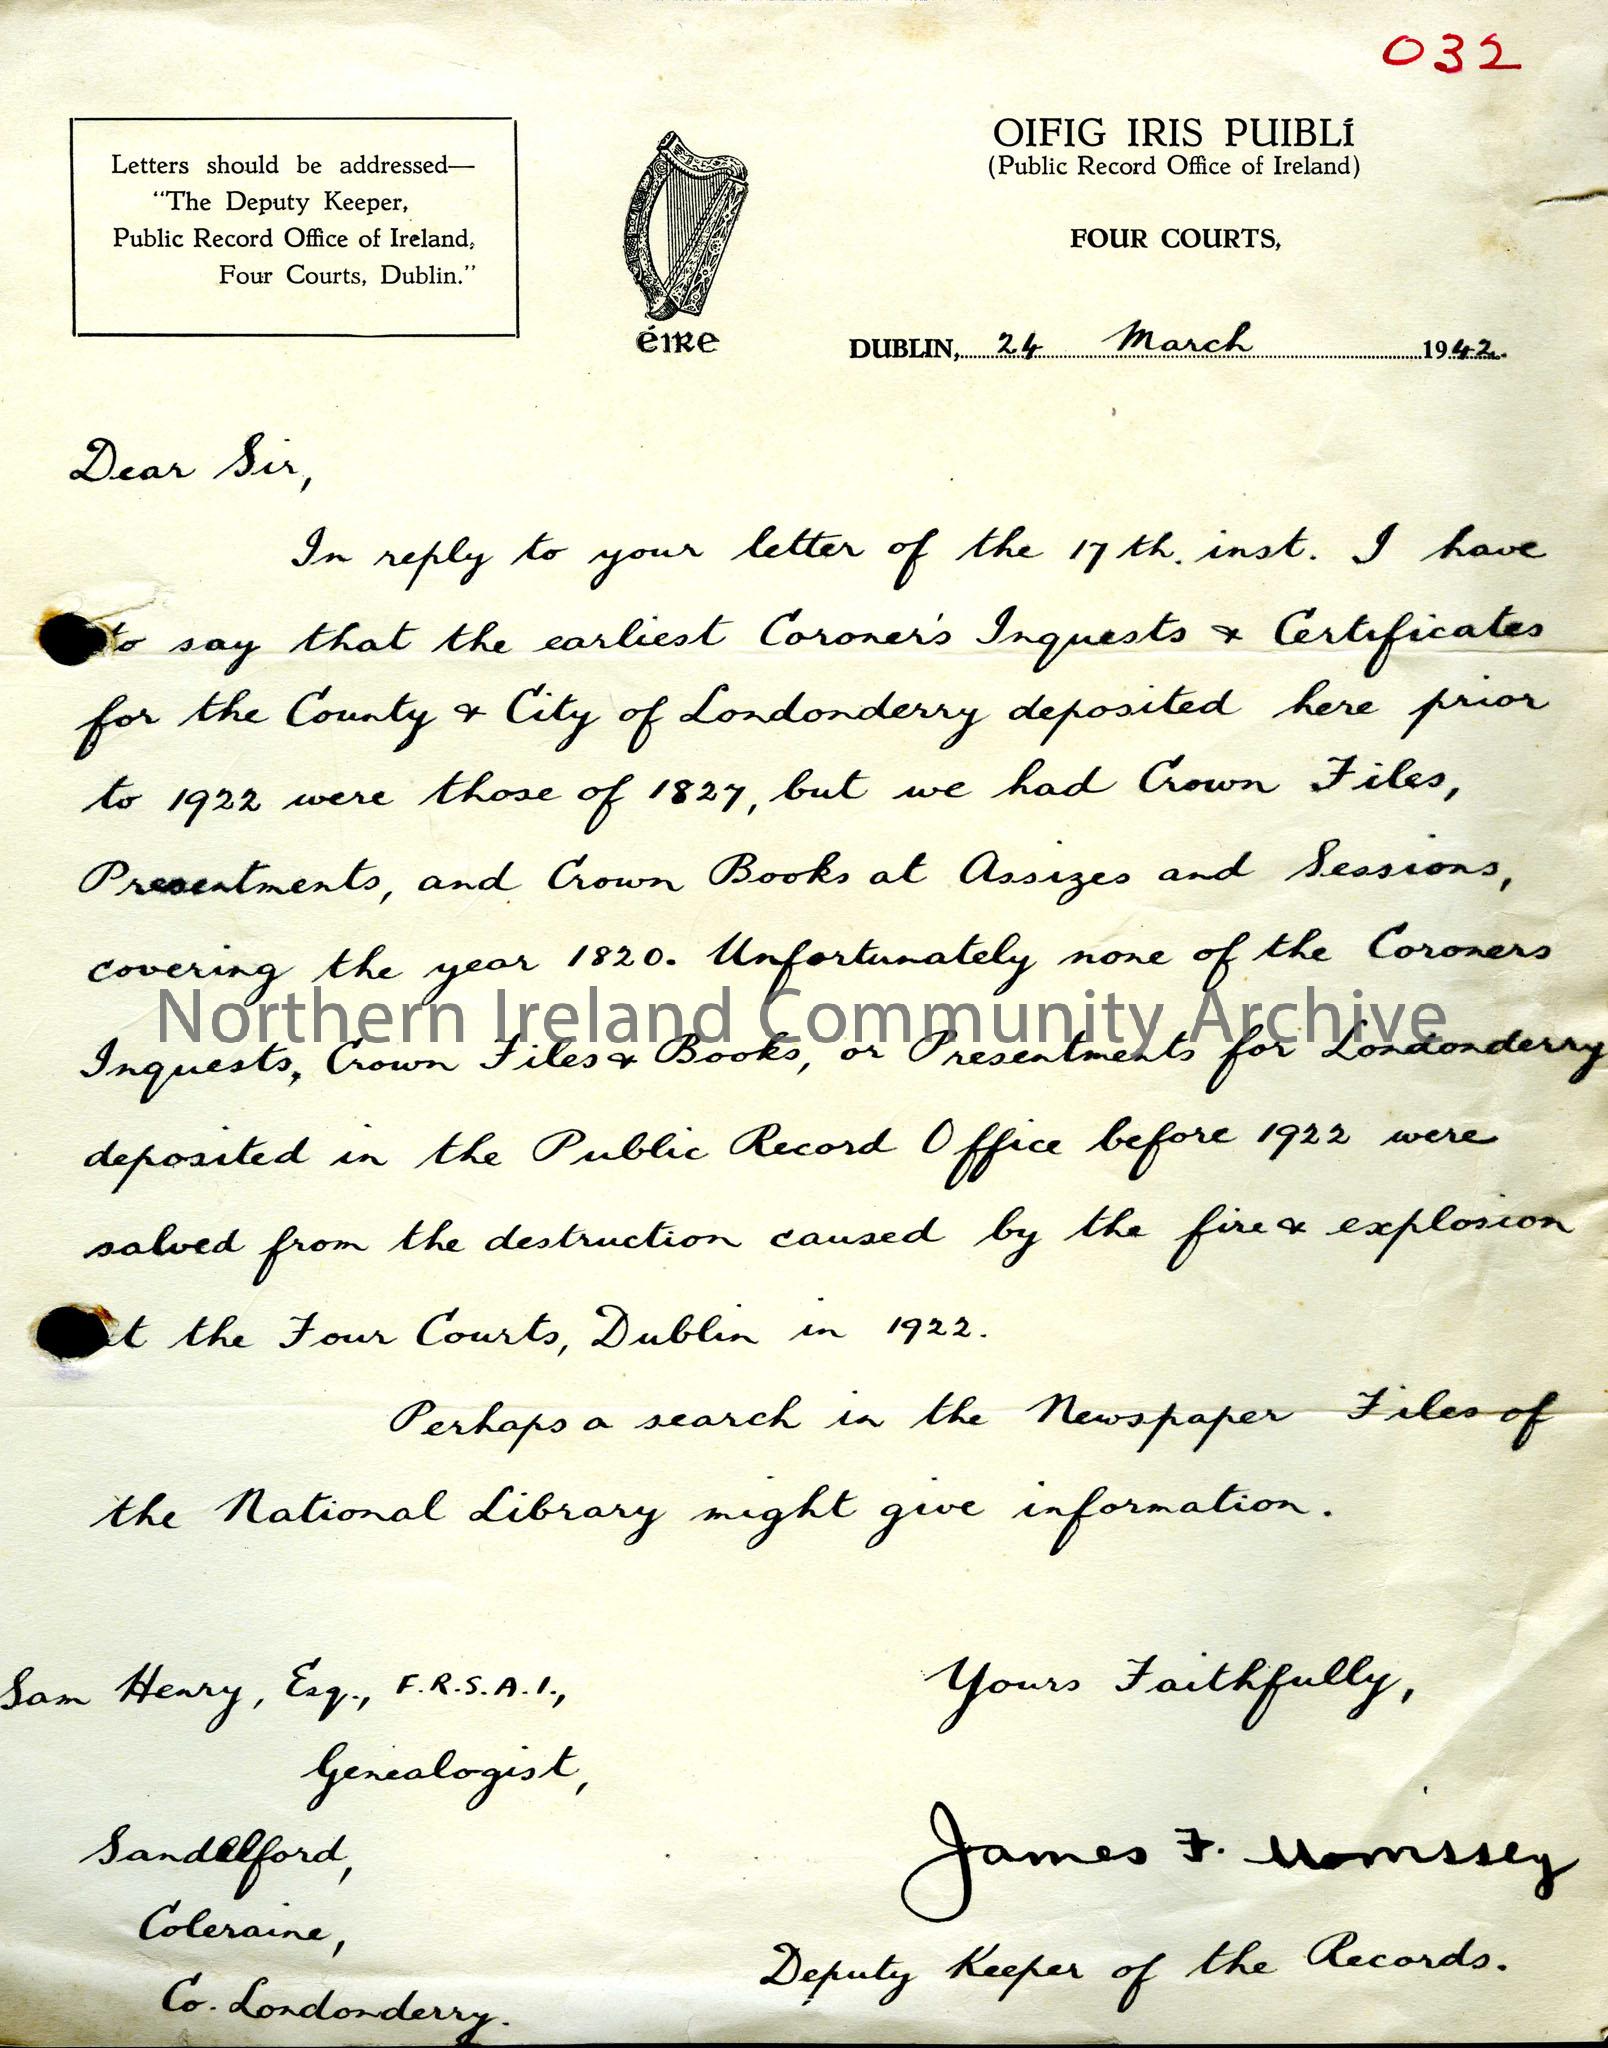 032
Letters should be addressed—
"The Deputy Keeper,
Public Record Office of Ireland,
Four Courts, Dublin."
éire
OIFIG IRIS PUIBLÍ
(Public Record Office of Ireland)
FOUR COURTS,
DUBLIN, 24 March 1942.
Dear Sir,
In reply to your letter of the 17th. inst. I have
to say that the earliest Coroner's Inquests & Certificates
for the County & City of Londonderry deposited here prior
to 1922 were those of 1827, but we had Crown Files,
Presentments, and Crown Books at Assizes and Sessions,
covering the year 1820. Unfortunately none of the Coroners
Northern Ireland Community Archive
Inquests, Crown Files & Books, or Presentments for Londonderry
deposited in the Public Record Office before 1922 were
salved from the destruction caused by the fire & explosion
at the Four Courts, Dublin in 1922.
Perhaps a search in the Newspaper Files of
the National Library might give information.
Yours Faithfully,
James F. Morrissey
Deputy Keeper of the Records.
Sam Henry, Esq., F.R.S.A.I.,
Genealogist,
Sandelford,
Coleraine,
Co. Londonderry.